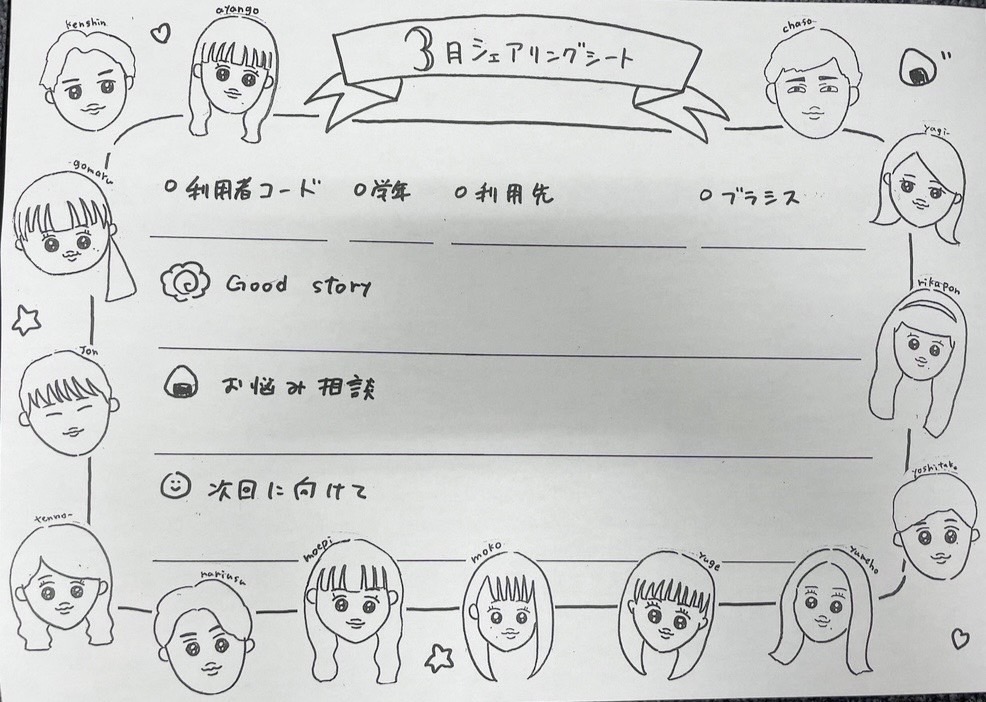 kenshin
ayango
3月シェアリングシート
chaso-
yagi-
gomaru
○利用者コード ○学年 ○利用先 ○プラシス
Good story
rikapon
Jon
お悩み相談
次回に向けて
yoshitaka
tenno-
nariusu
moepi
moko
Yuge
Yumeho